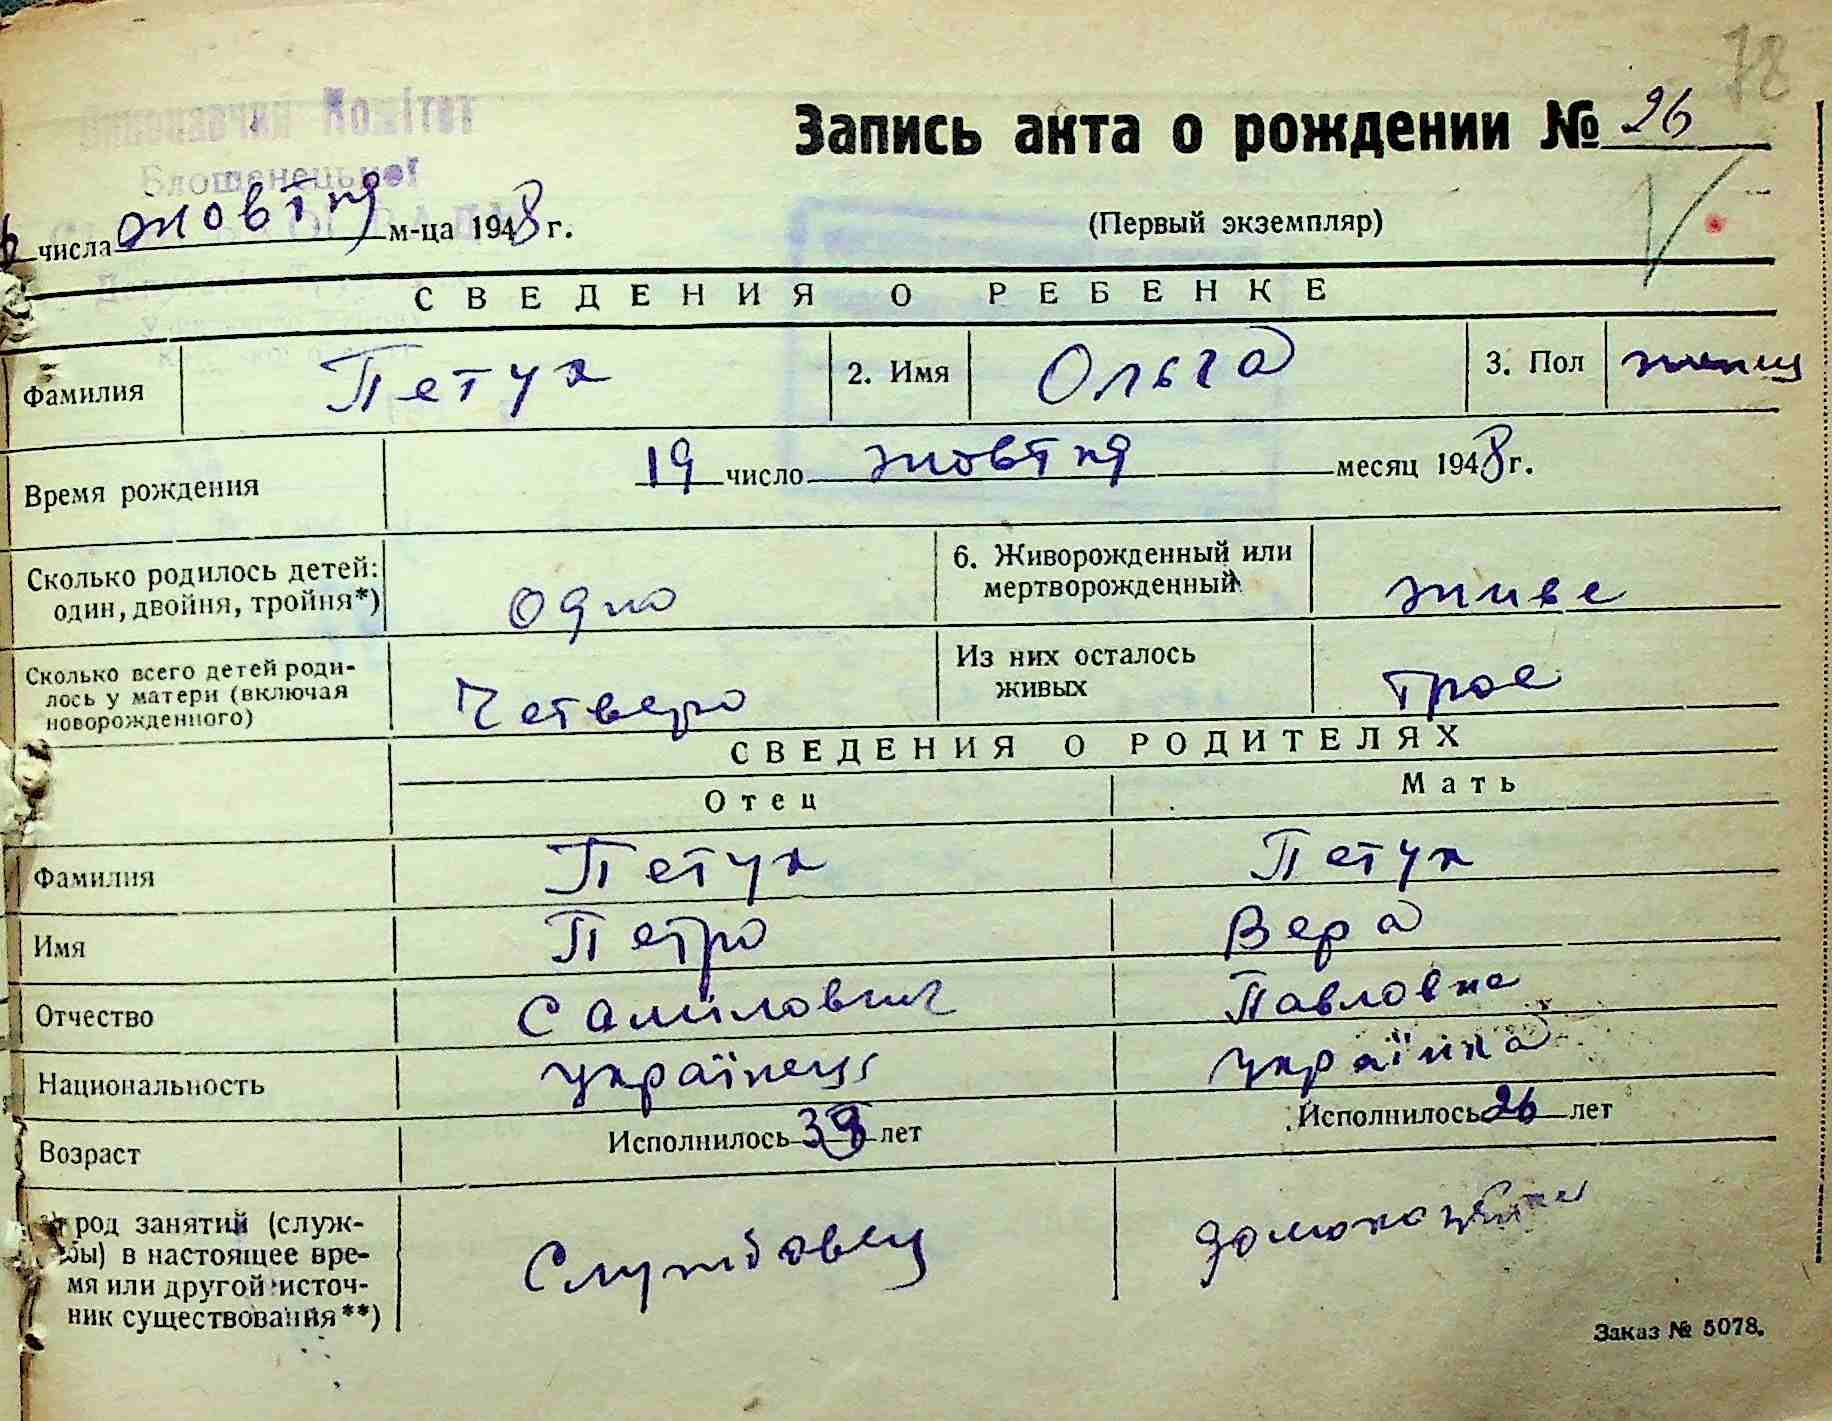 78
Виконавчий Комітет
Запись акта о рождении № 26
числа жовтня м-ца 1948 г.
(Первый экземпляр)
СВЕДЕНИЯ О РЕБЕНКЕ
Фамилия Петух 2. Имя Ольга 3. Пол женщ
Время рождения 19 число жовтня месяц 1948 г.
Сколько родилось детей: один, двойня, тройня*) Одно 6. Живорожденный или мертворожденный живе
Сколько всего детей роди-
лось у матери (включая
новорожденного) Четверо Из них осталось живых Трое
СВЕДЕНИЯ О РОДИТЕЛЯХ
Отец Мать
Фамилия Петух Петух
Имя Петро Вера
Отчество Самілович Павловна
Национальность українець українка
Возраст Исполнилось 39 лет Исполнилось 26 лет
род занятий (служ-
бы) в настоящее вре-
мя или другой источ-
ник существования**) Службовец
Заказ № 5078.